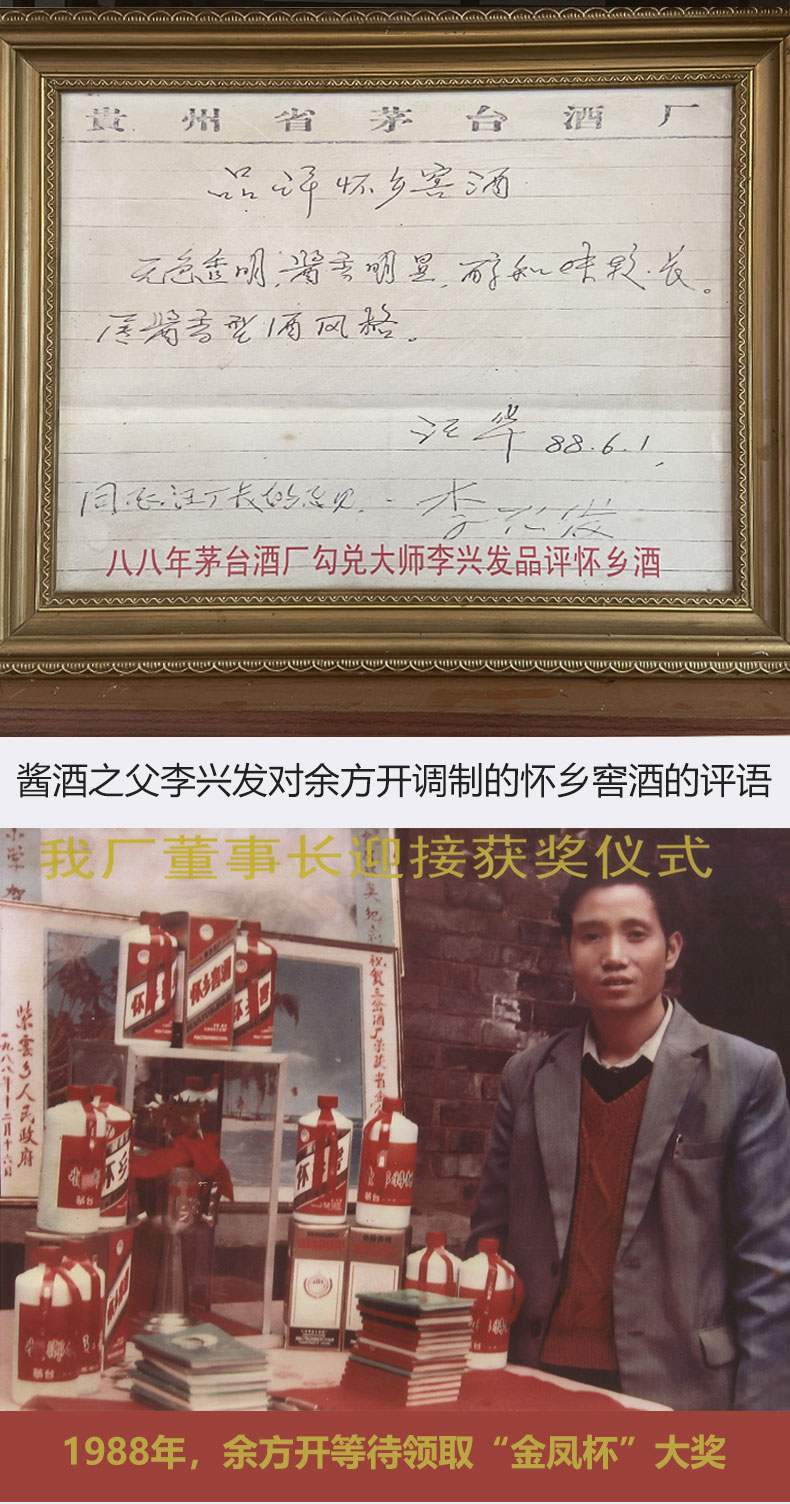 贵州省茅台酒厂
品评怀乡窖酒
无色透明,酱香明显,醇和味较长。
属酱香型酒风格。
汪华 88.6.1,
同意汪厂长的意见. 李兴发
八八年茅台酒厂勾兑大师李兴发品评怀乡酒
酱酒之父李兴发对余方开调制的怀乡窖酒的评语
我厂董事长迎接获奖仪式
祝贺三岔酒厂荣获省
紫雲乡人民政府
一九八八年十二月十六日
怀乡窖酒
茅台
茅台
1988年，余方开等待领取“金凤杯”大奖